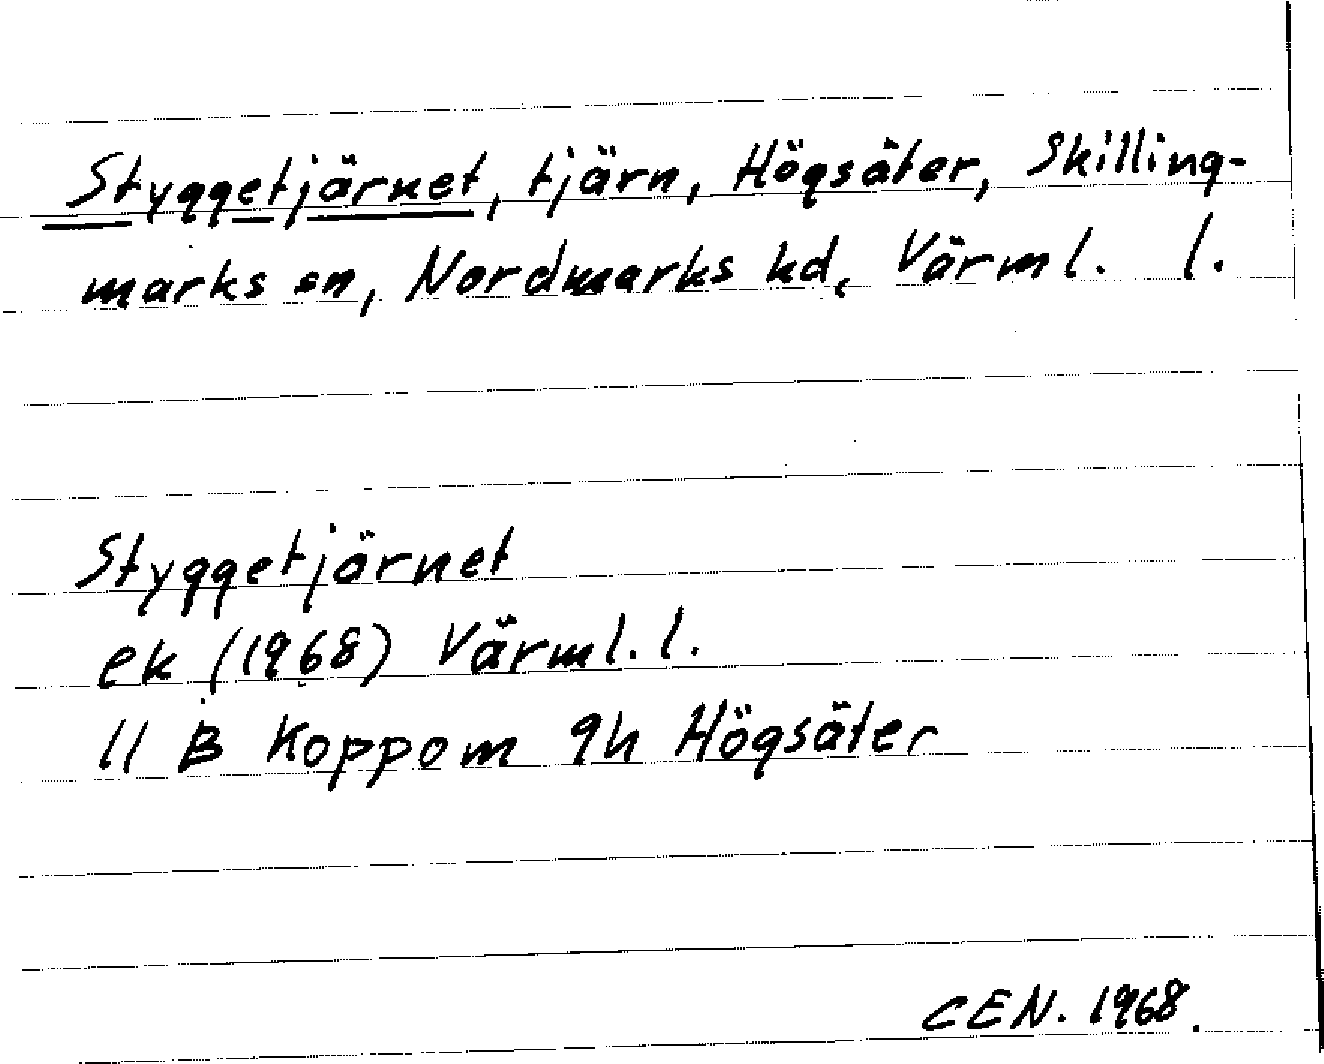 Styggetjärnet, tjärn, Högsäter, Skilling-
marks sn, Nordmarks hd, Värml. l.
Styggetjärnet
ek (1968) Värml. l.
11 B Koppom 9h Högsäter
CEN. 1968.